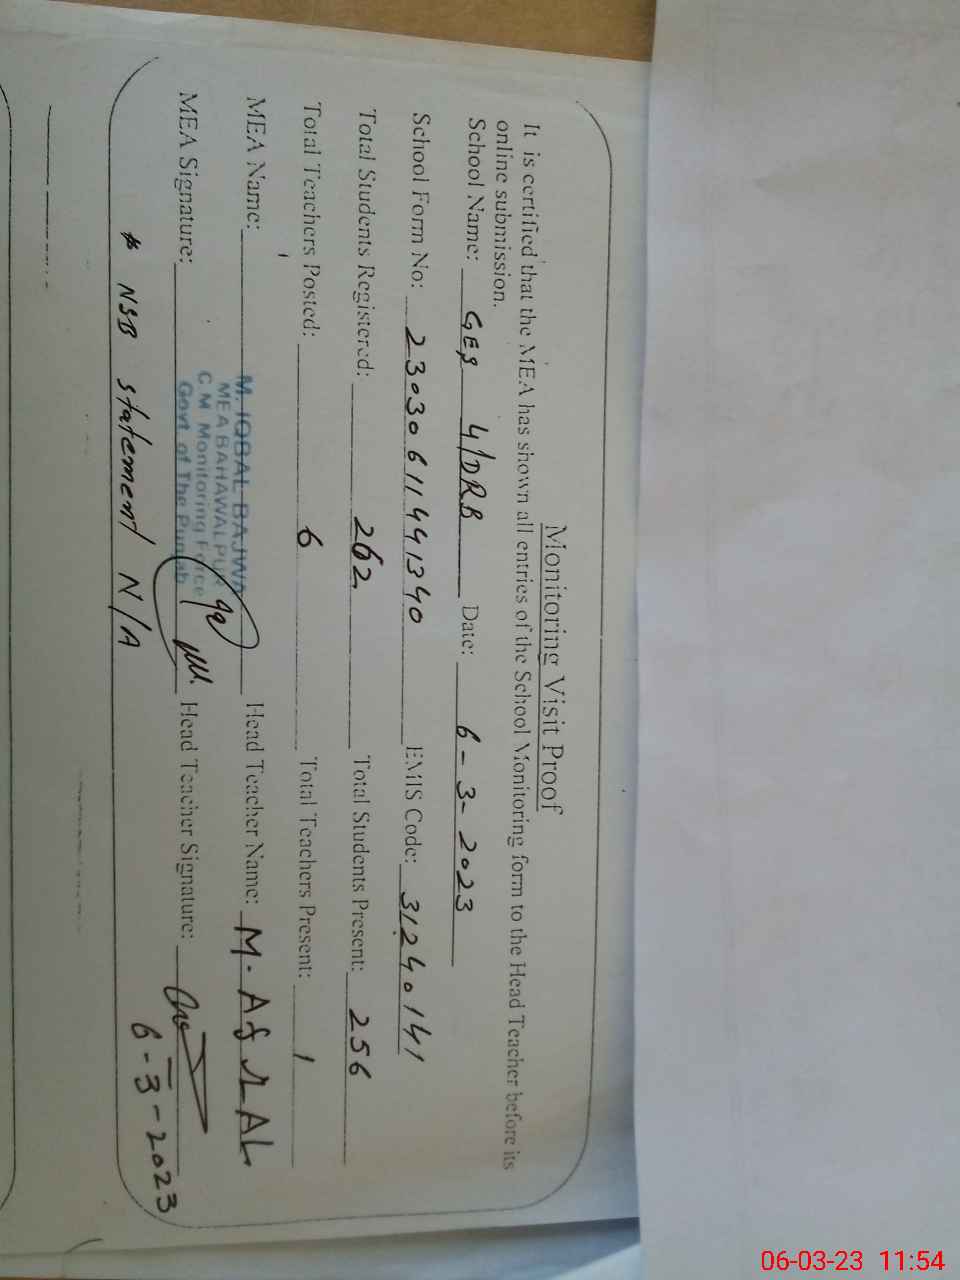 Monitoring Visit Proof
It is certified that the MEA has shown all entries of the School Monitoring form to the Head Teacher before its
online submission.
School Name: GES 4/DRB Date: 6-3-2023
School Form No: 23030611441340 EMIS Code: 31240141
Total Students Registered: 262 Total Students Present: 256
Total Teachers Posted: 6 Total Teachers Present: 1
MEA Name: M. IQBAL BAJWA Head Teacher Name: M. AfzAL
MEA BAHAWALPUR
C.M. Monitoring Force
Govt. of The Punjab
MEA Signature: Head Teacher Signature:
6-3-2023
* NSB statement N/A
06-03-23 11:54